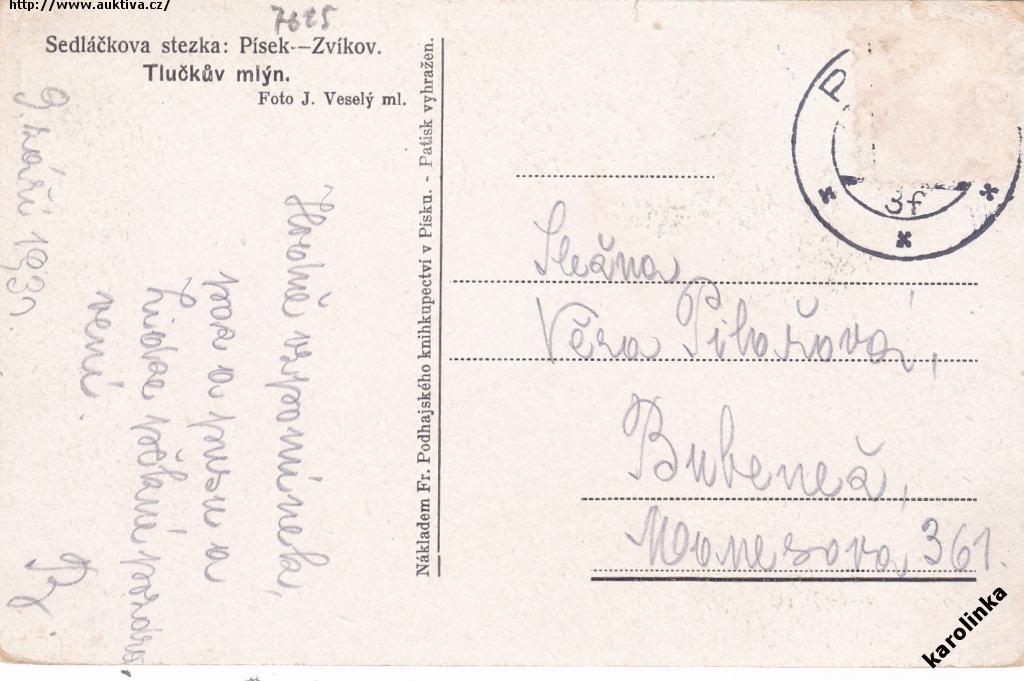 http://www.auktiva.cz/
7625
Sedláčkova stezka: Písek—Zvíkov.
Tlučkův mlýn.
Foto J. Veselý ml.
9. září 193
Hodně vzpomínek,
pac a pusu a
pěkné pozdra
vení.
B.
Nákladem Fr. Podhajského knihkupectví v Písku. - Patisk vyhražen.
P
3f
Slečna
Věra Pibořová,
Bubeneč,
Manesova 361.
karolinka